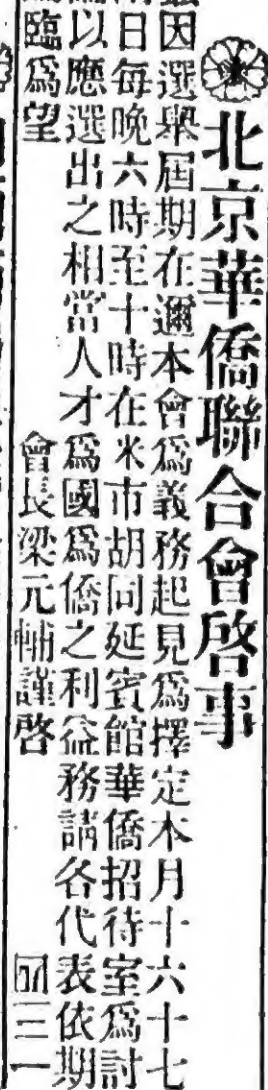 北京華僑聯合會啓事
因選舉屆期在邇本會爲義務起見爲擇定本月十六十七
日每晚六時至十時在米市胡同延賓館華僑招待室爲討
以應選出之相當人才爲國爲僑之利益務請各代表依期
臨爲望　會長梁元輔謹啓　三一